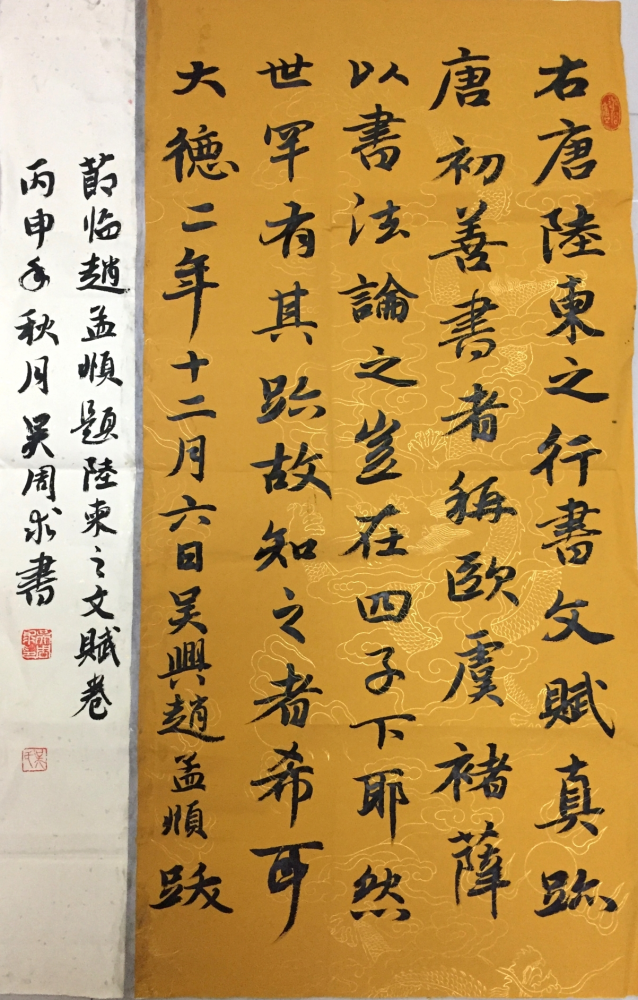 右唐陸柬之行書文賦真跡
唐初善書者稱歐虞褚薛
以書法論之豈在四子下耶然
世罕有其跡故知之者希耳
大德二年十二月六日吴興趙孟頫跋
節临趙孟頫题陸柬之文賦卷
丙申年秋月吴周求書